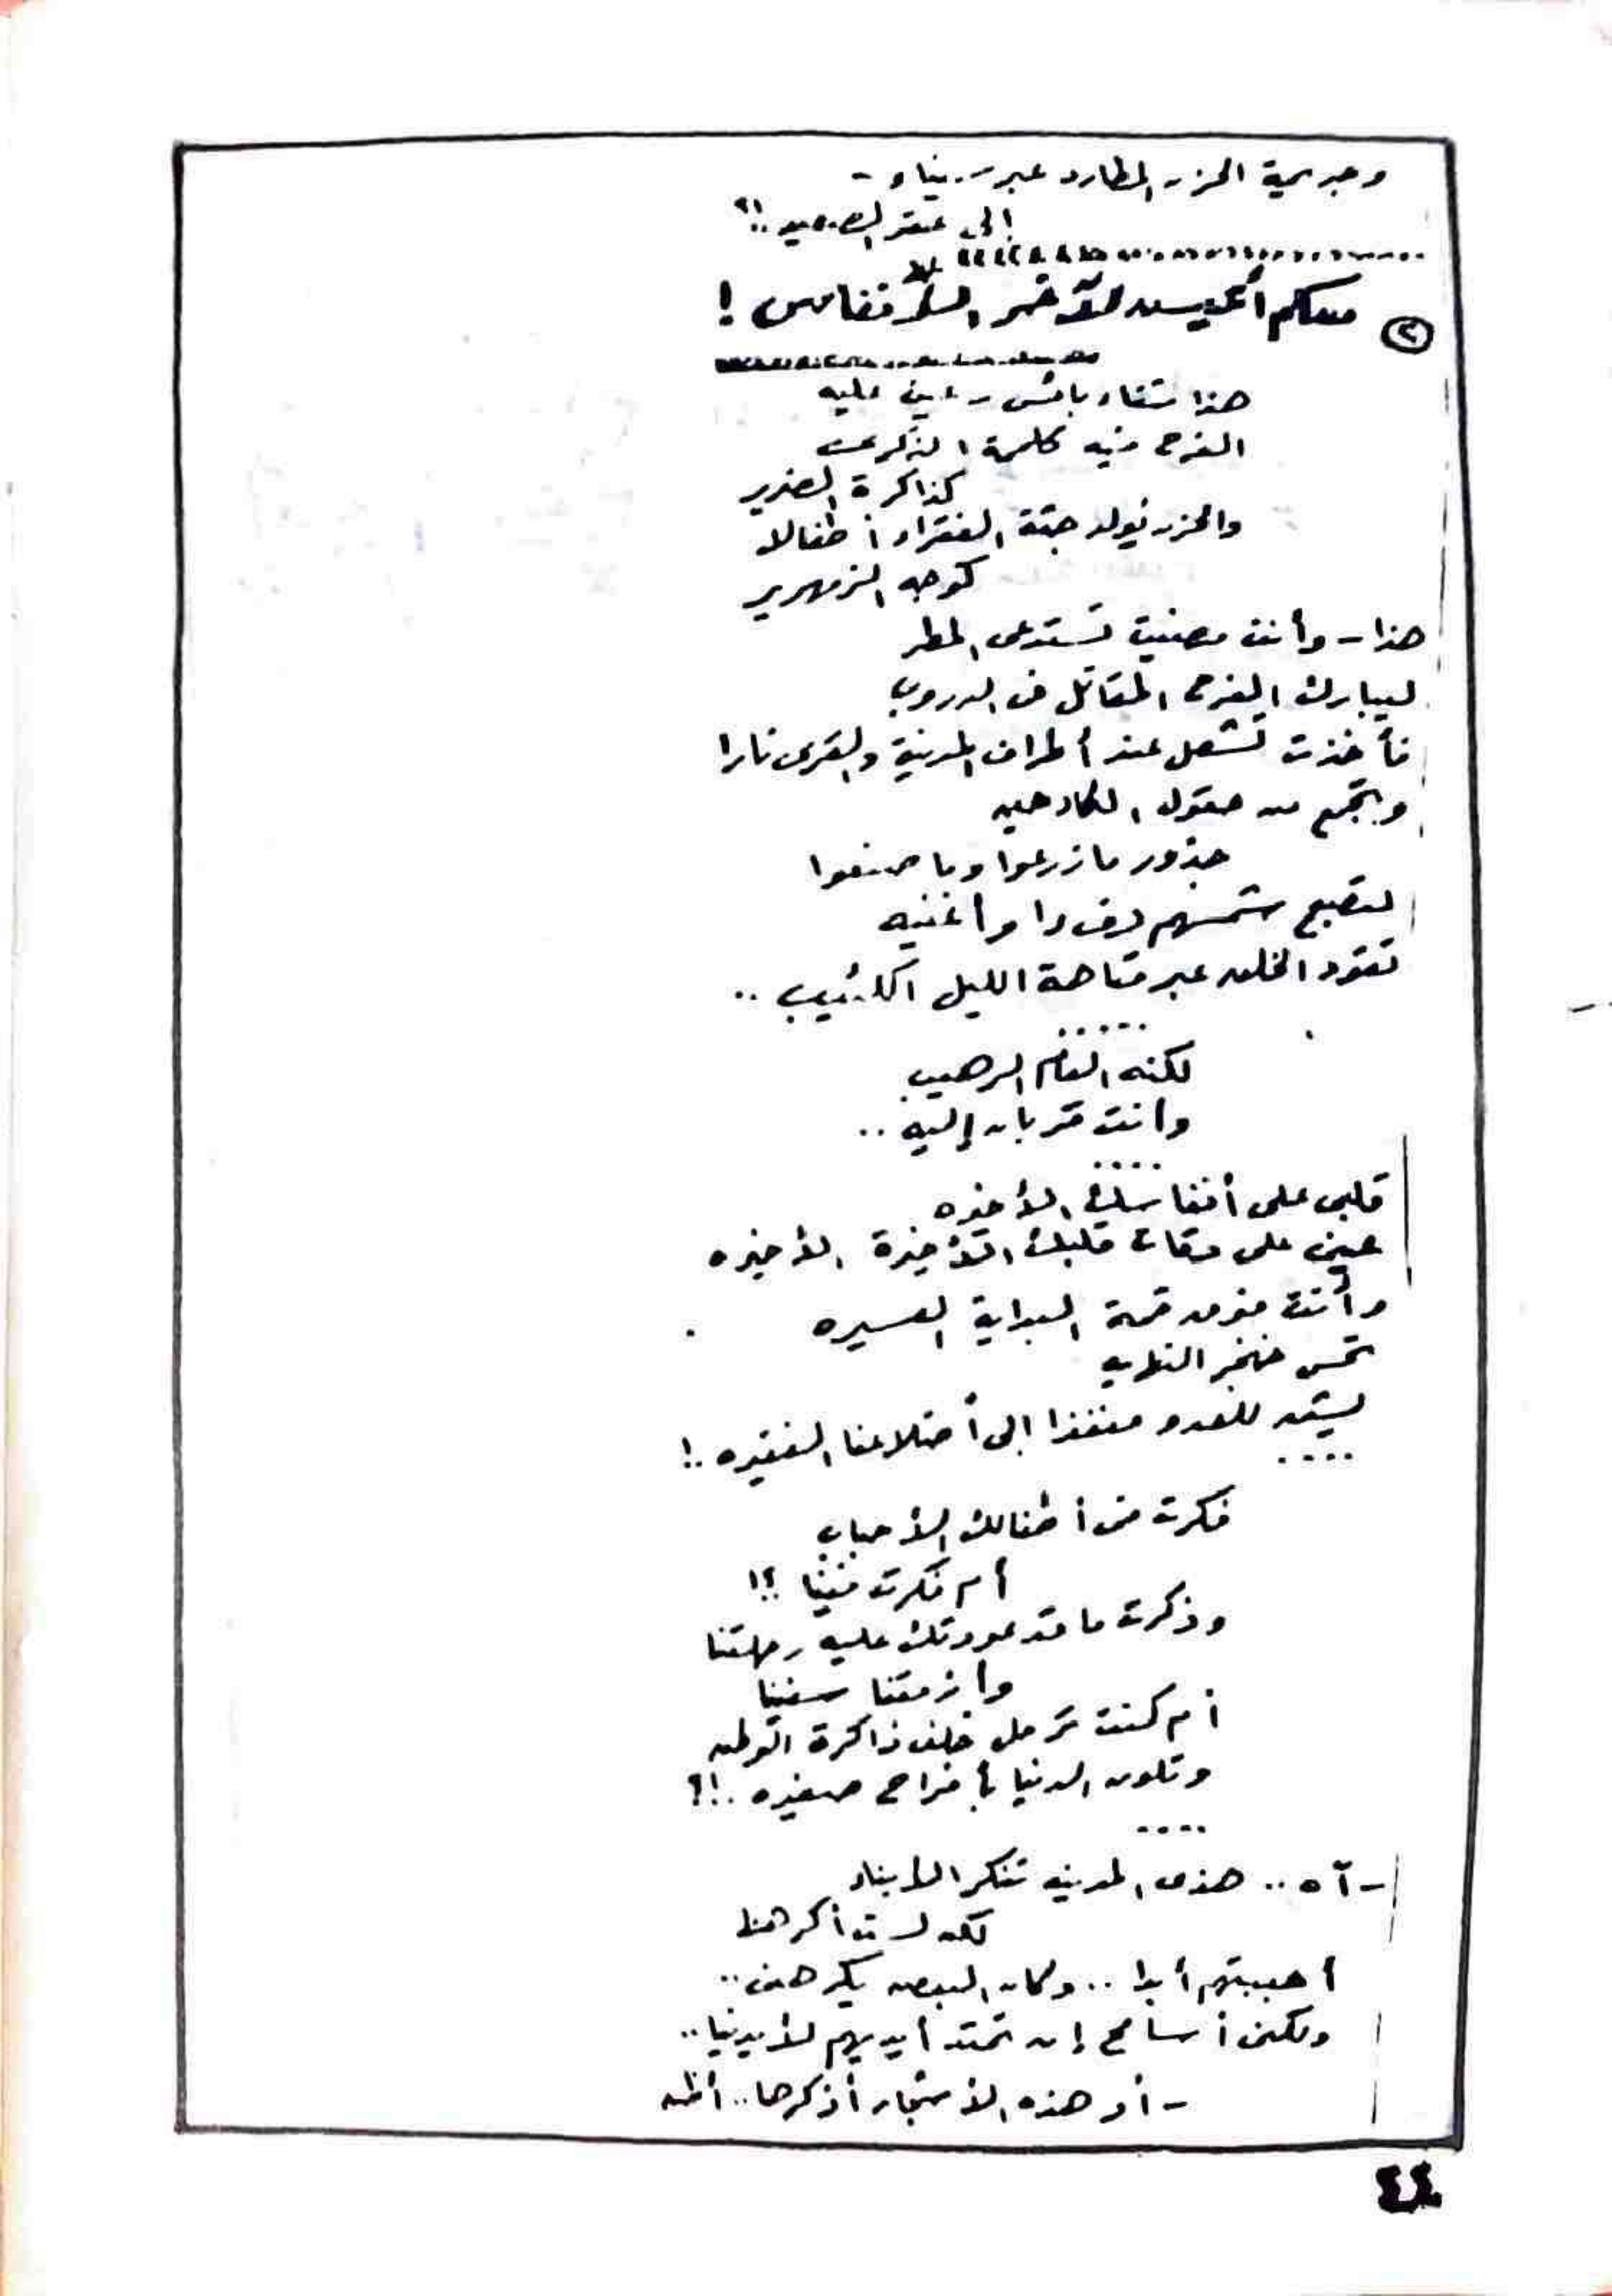 وجريمة الحزن المطارد عبر سيناء -
إلى عقر الصعيد ..!؟
٢
معكم أعيش لآخر الأنفاس !
هذا شتاء بائس
الفرح فيه كلمة الذكرى
كذاكرة الضرير
والحزن يولد جثة الفقراء أطفالا
كوجه الزمهرير
هذا - وأنت مصيت تستدعى المطر
ليبارك الفرح المقاتل فى الدروب
فأخذت تشعل عند أطراف المدينة والقرى نارا
وتجمع من حقول الكادحين
جذور ما زرعوا وما صنعوا
لتصبح شمسهم وأغنيه
تقود الخلق عبر متاهة الليل الكئيب ..
.....
لكنه العام الرهيب
وأنت قربان إليه ..
....
قلبى على أنفاسك الأخيره
عينى على دقات قلبك الأخيرة الأخيره
وأنت فوق قمة البداية العسيره
تحس خنجر النهايه
يشق للعدو منفذا إلى أضلاعنا الفقيره ..!
....
فكرت فى أطفالك الأحباب
أم فكرت فينا ؟!
وذكرت ما قد عودتك عليه رحلتنا
وأزمتنا سنينا
أم كنت ترحل خلف ذاكرة الوطن
وتلون الدنيا بأفراح صغيره ..!؟
....
- آه .. هذى المدينه تنكر الأبناء
لكن لست أكرهها
أحببتهم أبدا .. وكان البعض يكرهنى ..
ولكنى أسامح إن تمتد أيديهم لأيدينا ..
- أو هذه الأشجار أذكرها .. أظن
٤٤